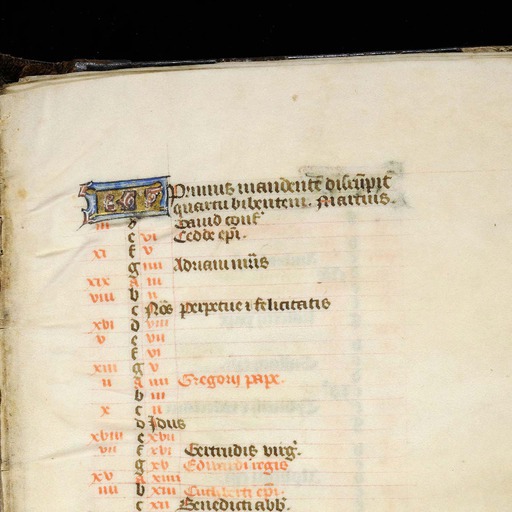 KL Primus mandentē disrūpit
quartu bibentem. Martius.
iii d Dauid conf
e vi Cedde epi.
xi f v
g iiii Adriani mris
xix A iii
viii b ii
c Nōs perpetue ⁊ felicitatis
xvi d viii
v e vii
f vi
xiii g v
ii A iiii Gregorij pape.
b iii
x c ii
d Idus
xviii e xvii
vii f xvi Gertrudis virg.
g xv Edwardi regis
xv A xiiii
iiii b xiii Cuthberti epi.
c xii Benedicti abb.